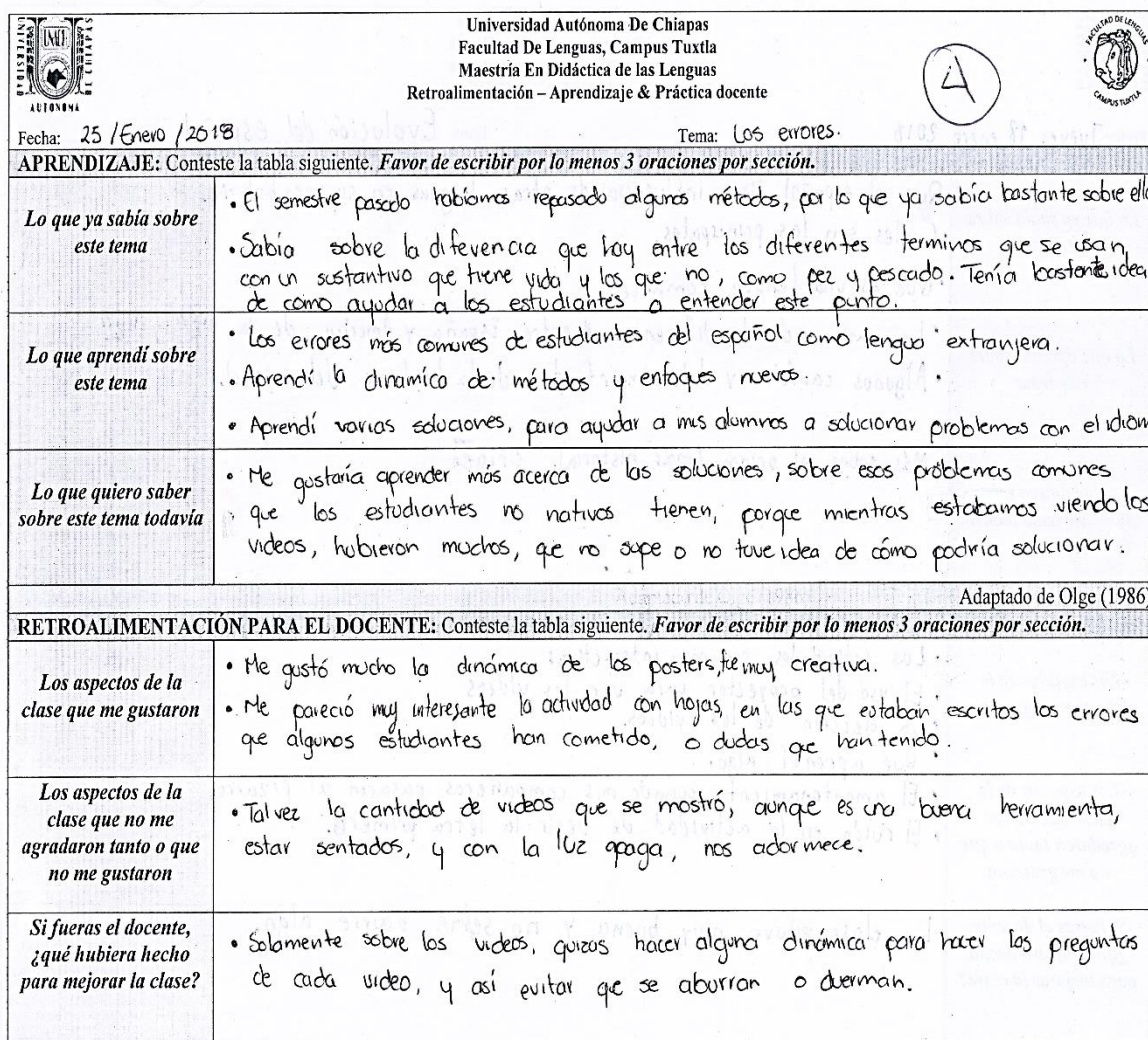 Universidad Autónoma De Chiapas
Facultad De Lenguas, Campus Tuxtla
Maestría En Didáctica de las Lenguas
Retroalimentación – Aprendizaje & Práctica docente
4
UNACH
AUTONOMA
FACULTAD DE LENGUAS
CAMPUS TUXTLA
Fecha: 25 / Enero / 2018
Tema: Los errores.
APRENDIZAJE: Conteste la tabla siguiente. Favor de escribir por lo menos 3 oraciones por sección.
Lo que ya sabía sobre
este tema
• El semestre pasado habiamos repasado algunos métodos, por lo que ya sabía bastante sobre ello
• Sabía sobre la diferencia que hay entre los diferentes terminos que se usan,
con un sustantivo que tiene vida y los que no, como pez y pescado. Tenía bastante idea
de cómo ayudar a los estudiantes a entender este punto.
Lo que aprendí sobre
este tema
• Los errores más comunes de estudiantes del español como lengua extranjera.
• Aprendí la dinamica de métodos y enfoques nuevos.
• Aprendí varias soluciones, para ayudar a mis alumnos a solucionar problemas con el idiom
Lo que quiero saber
sobre este tema todavía
• Me gustaría aprender más acerca de las soluciones, sobre esos problemas comunes
que los estudiantes no nativos tienen, porque mientras estabamos viendo los
videos, hubieron muchos, qe no supe o no tuve idea de cómo podría solucionar.
Adaptado de Olge (1986)
RETROALIMENTACIÓN PARA EL DOCENTE: Conteste la tabla siguiente. Favor de escribir por lo menos 3 oraciones por sección.
Los aspectos de la
clase que me gustaron
• Me gustó mucho la dinámica de los posters, fue muy creativa.
• Me pareció muy interesante la actividad con hojas, en las que estaban escritos los errores
que algunos estudiantes han cometido, o dudas qe han tenido.
Los aspectos de la
clase que no me
agradaron tanto o que
no me gustaron
• Tal vez la cantidad de videos que se mostró, aunque es una buena herramienta,
estar sentados, y con la luz apaga, nos adormece.
Si fueras el docente,
¿qué hubiera hecho
para mejorar la clase?
• Solamente sobre los videos, quizas hacer alguna dinámica para hacer las preguntas
de cada video, y así evitar qe se aburran o duerman.